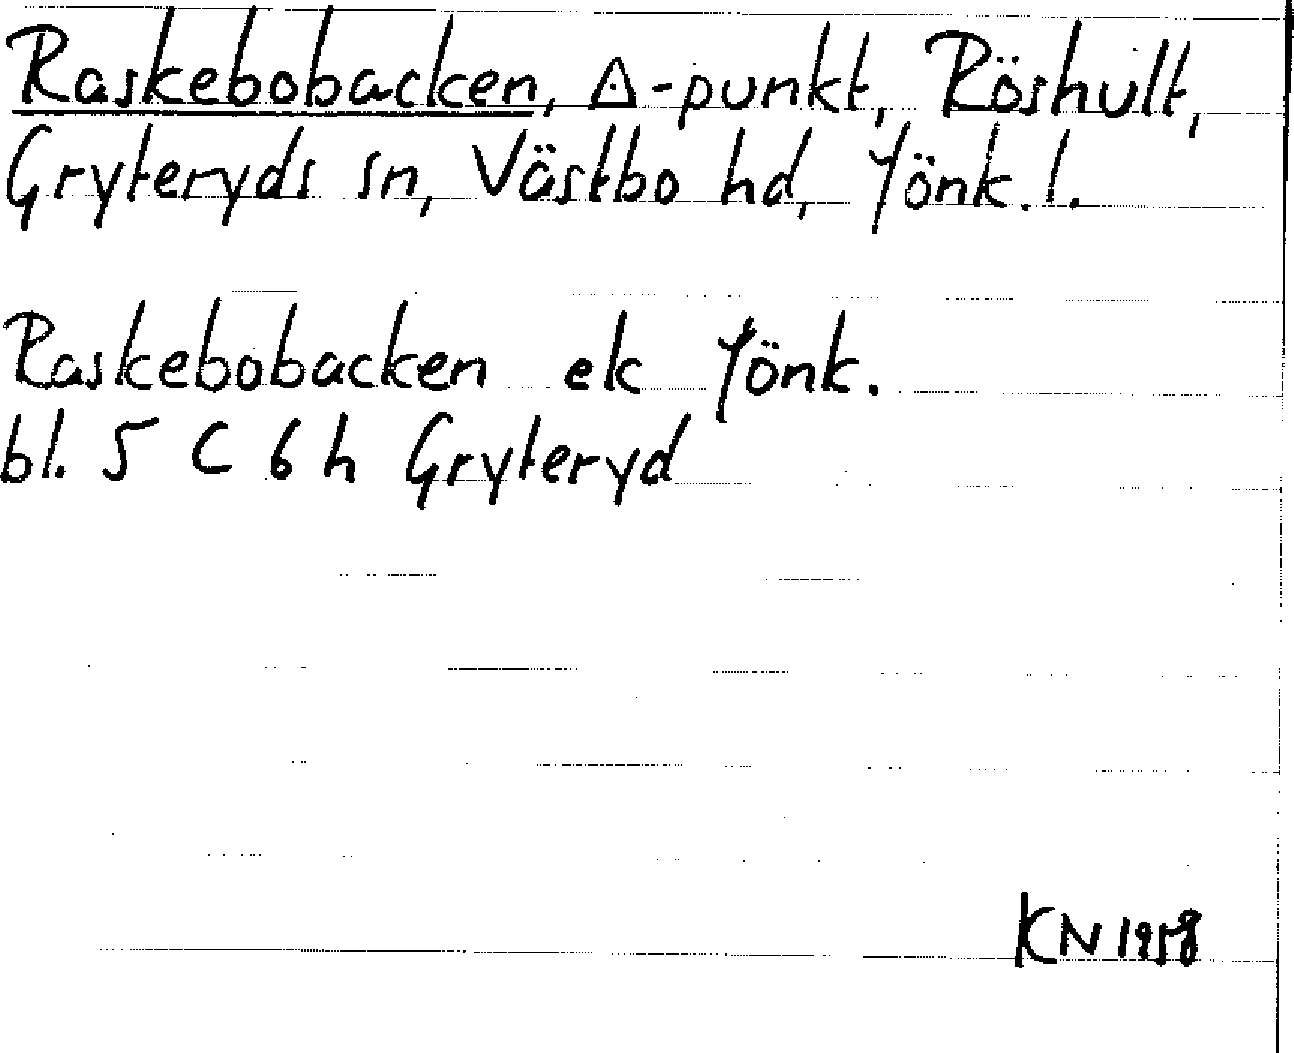 Raskebobacken, ∆-punkt, Röshult,
Gryteryds sn, Västbo hd, Jönk.l.
Raskebobacken ek Jönk.
bl. 5 C 6 h Gryteryd
KN 1958